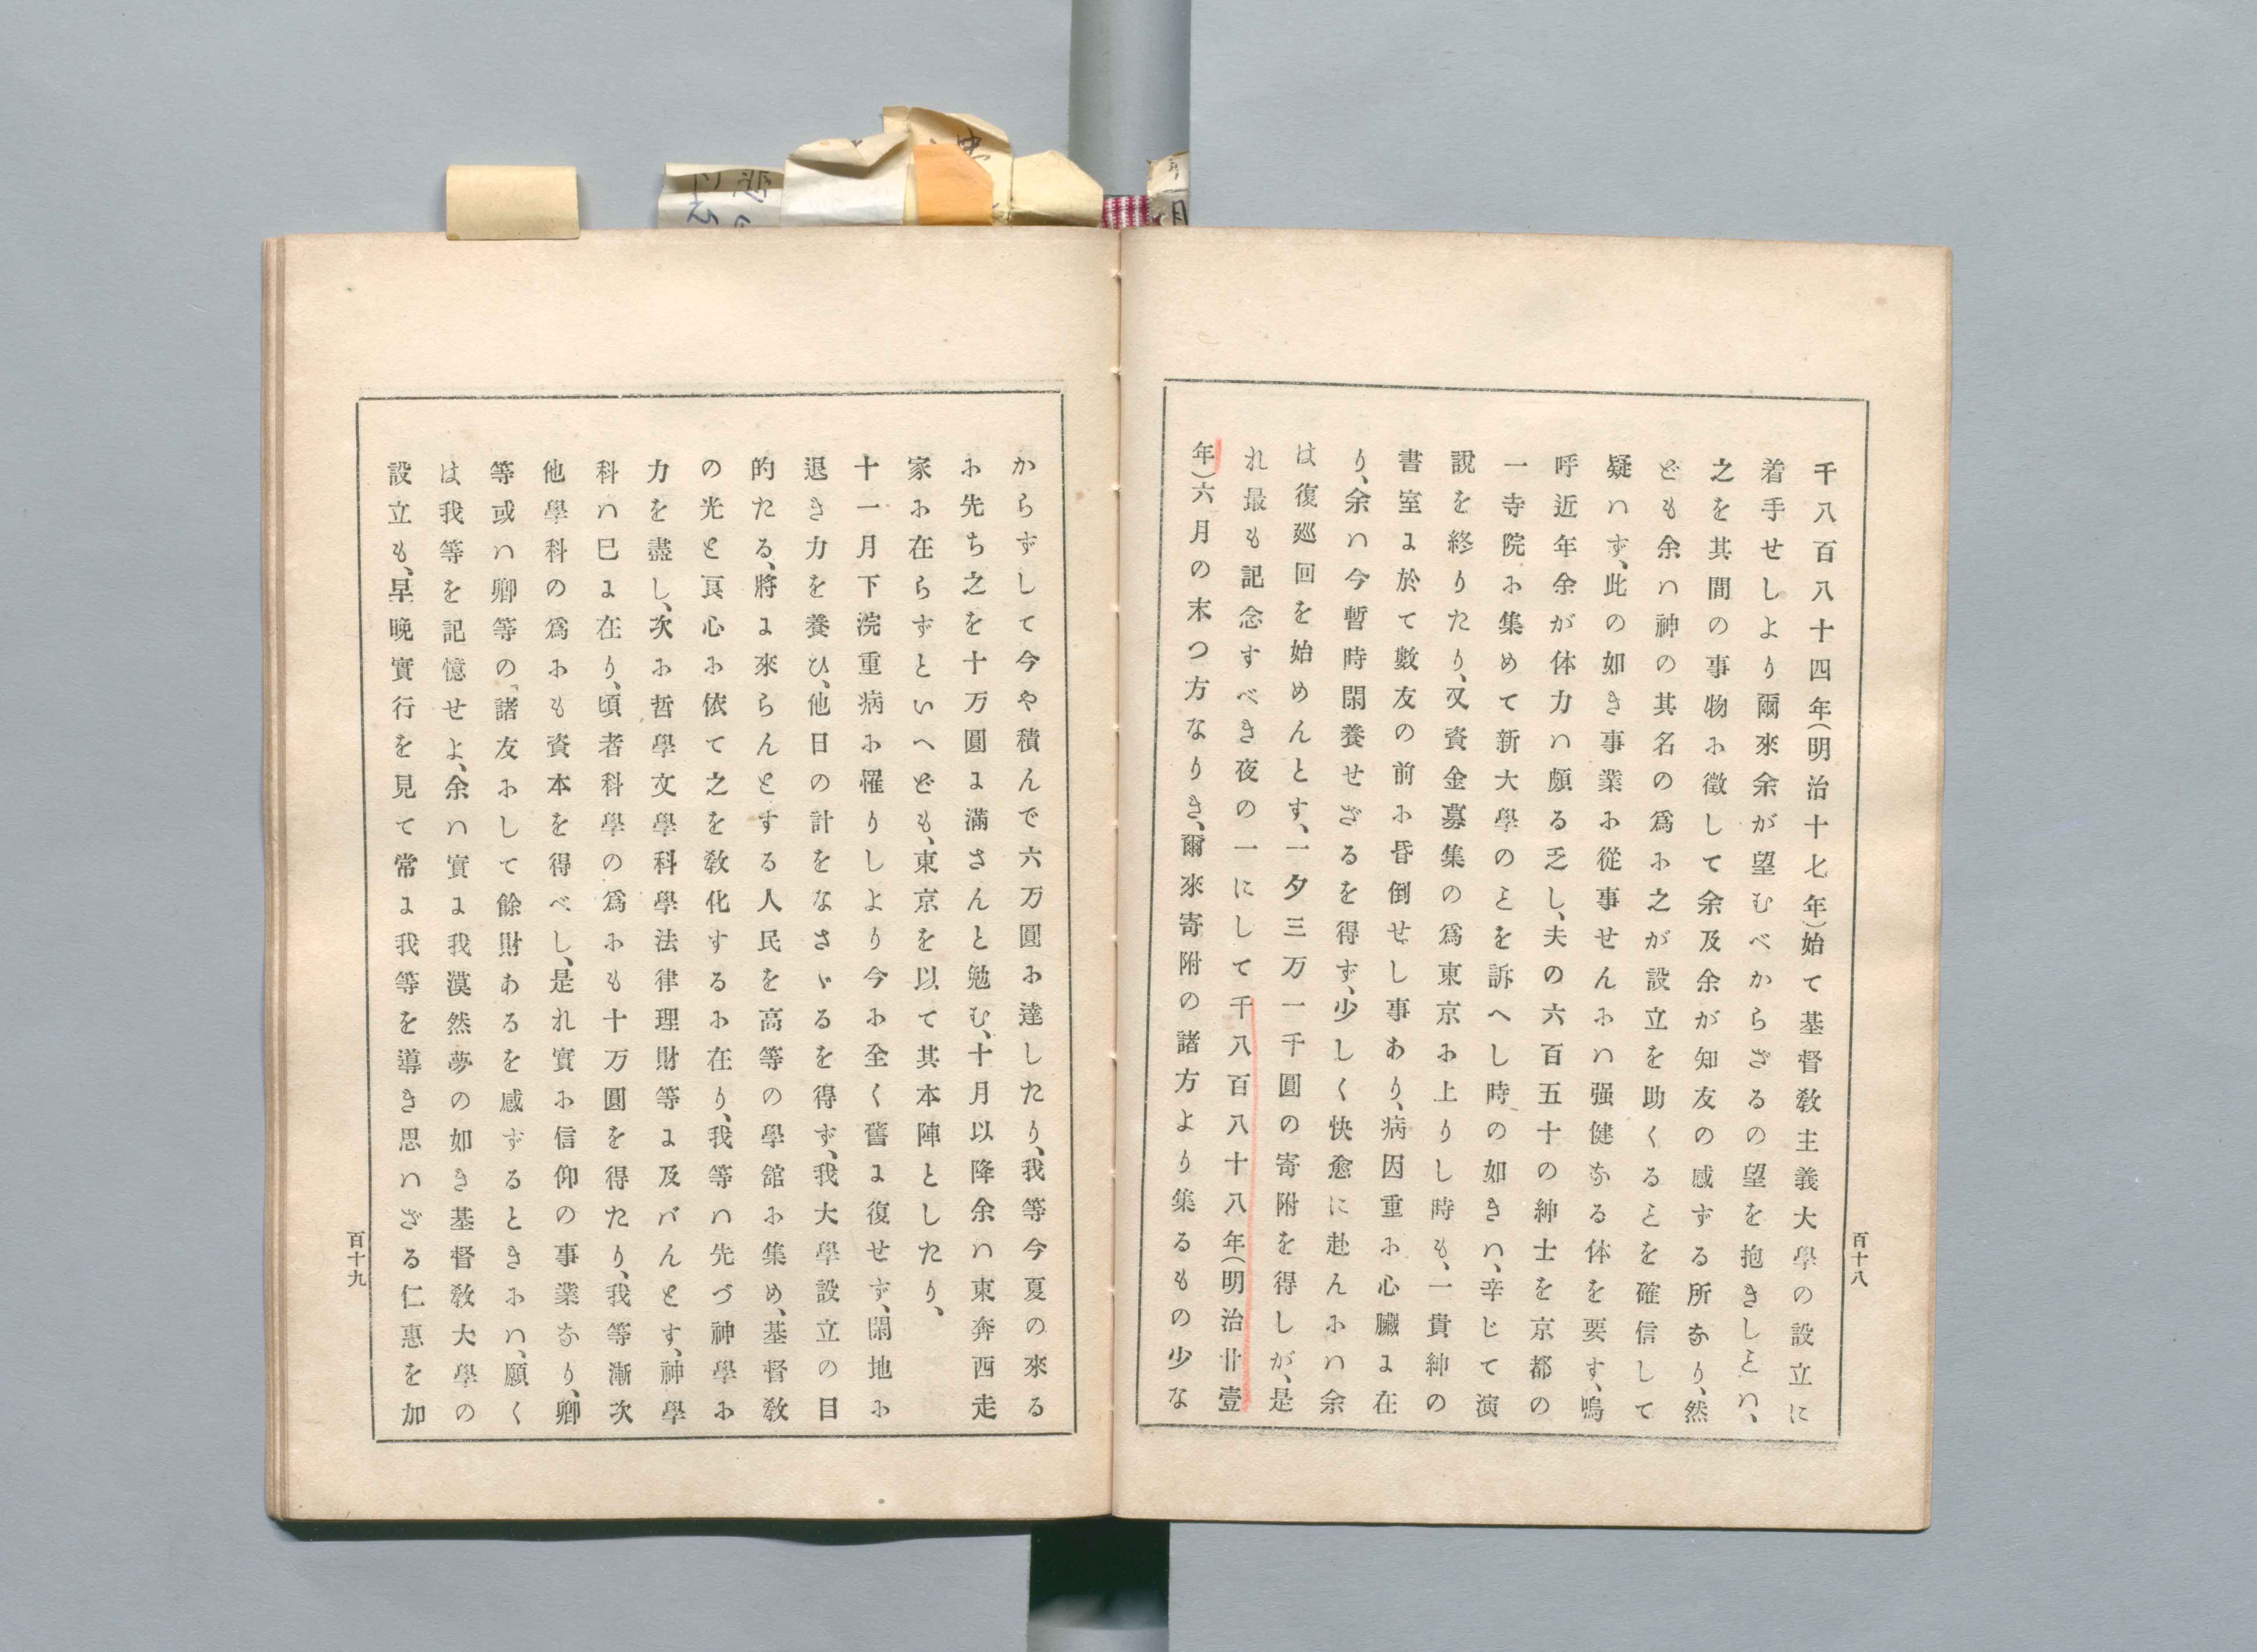 千八百八十四年(明治十七年)始て基督敎主義大學の設立に
着手せしより爾來余が望むべからざるの望を抱きしとハ、
之を其間の事物お徴して余及余が知友の感ずる所なり、然
ども余ハ神の其名の爲お之が設立を助くるとを確信して
疑ハず、此の如き事業お從事せんおハ强健なる体を要す、嗚
呼近年余が体力ハ頗る乏し、夫の六百五十の紳士を京都の
一寺院お集めて新大學のとを訴へし時の如きハ、辛じて演
說を終りたり、又資金募集の爲東京お上りし時も、一貴紳の
書室よ於て數友の前お昏倒せし事あり、病因重お心臟よ在
り、余ハ今暫時閑養せざるを得ず、少しく快愈に赴んおハ余
は復廵回を始めんとす、一夕三万一千圓の寄附を得しが、是
れ最も記念すべき夜の一にして千八百八十八年(明治廿壹
年)六月の末つ方なりき、爾來寄附の諸方より集るもの少な
百十八
からずして今や積んで六万圓お達したり、我等今夏の來る
お先ち之を十万圓よ滿さんと勉む、十月以降余ハ東奔西走
家お在らずといへども、東京を以て其本陣としたり、
十一月下浣重病お罹りしより今お全く舊よ復せず、閑地お
退き力を養ひ、他日の計をなさゞるを得ず、我大學設立の目
的たる、將よ來らんとする人民を高等の學舘お集め、基督敎
の光と良心お依て之を敎化するお在り、我等ハ先づ神學お
力を盡し、次お哲學文學科學法律理財等よ及バんとす、神學
科ハ已よ在り、頃者科學の爲おも十万圓を得たり、我等漸次
他學科の爲おも資本を得べし、是れ實お信仰の事業なり、卿
等或ハ卿等の「諸友おして餘財あるを感ずるときおハ、願く
は我等を記憶せよ、余ハ實よ我漠然夢の如き基督敎大學の
設立も、早晩實行を見て常よ我等を導き思ハざる仁惠を加
百十九